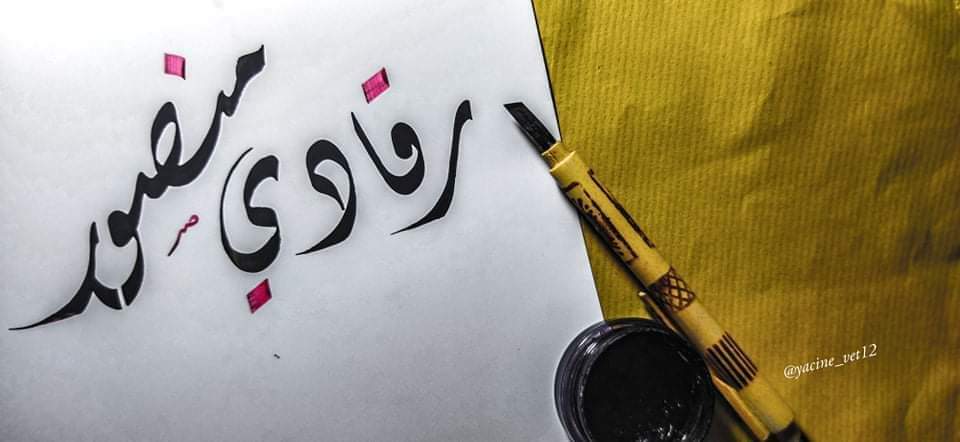 رفادي منصور
@yacine_vet12